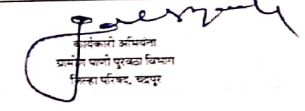 कार्यकारी अभियंता
ग्रामीण पाणी पुरवठा विभाग
जिल्हा परिषद, चंद्रपूर